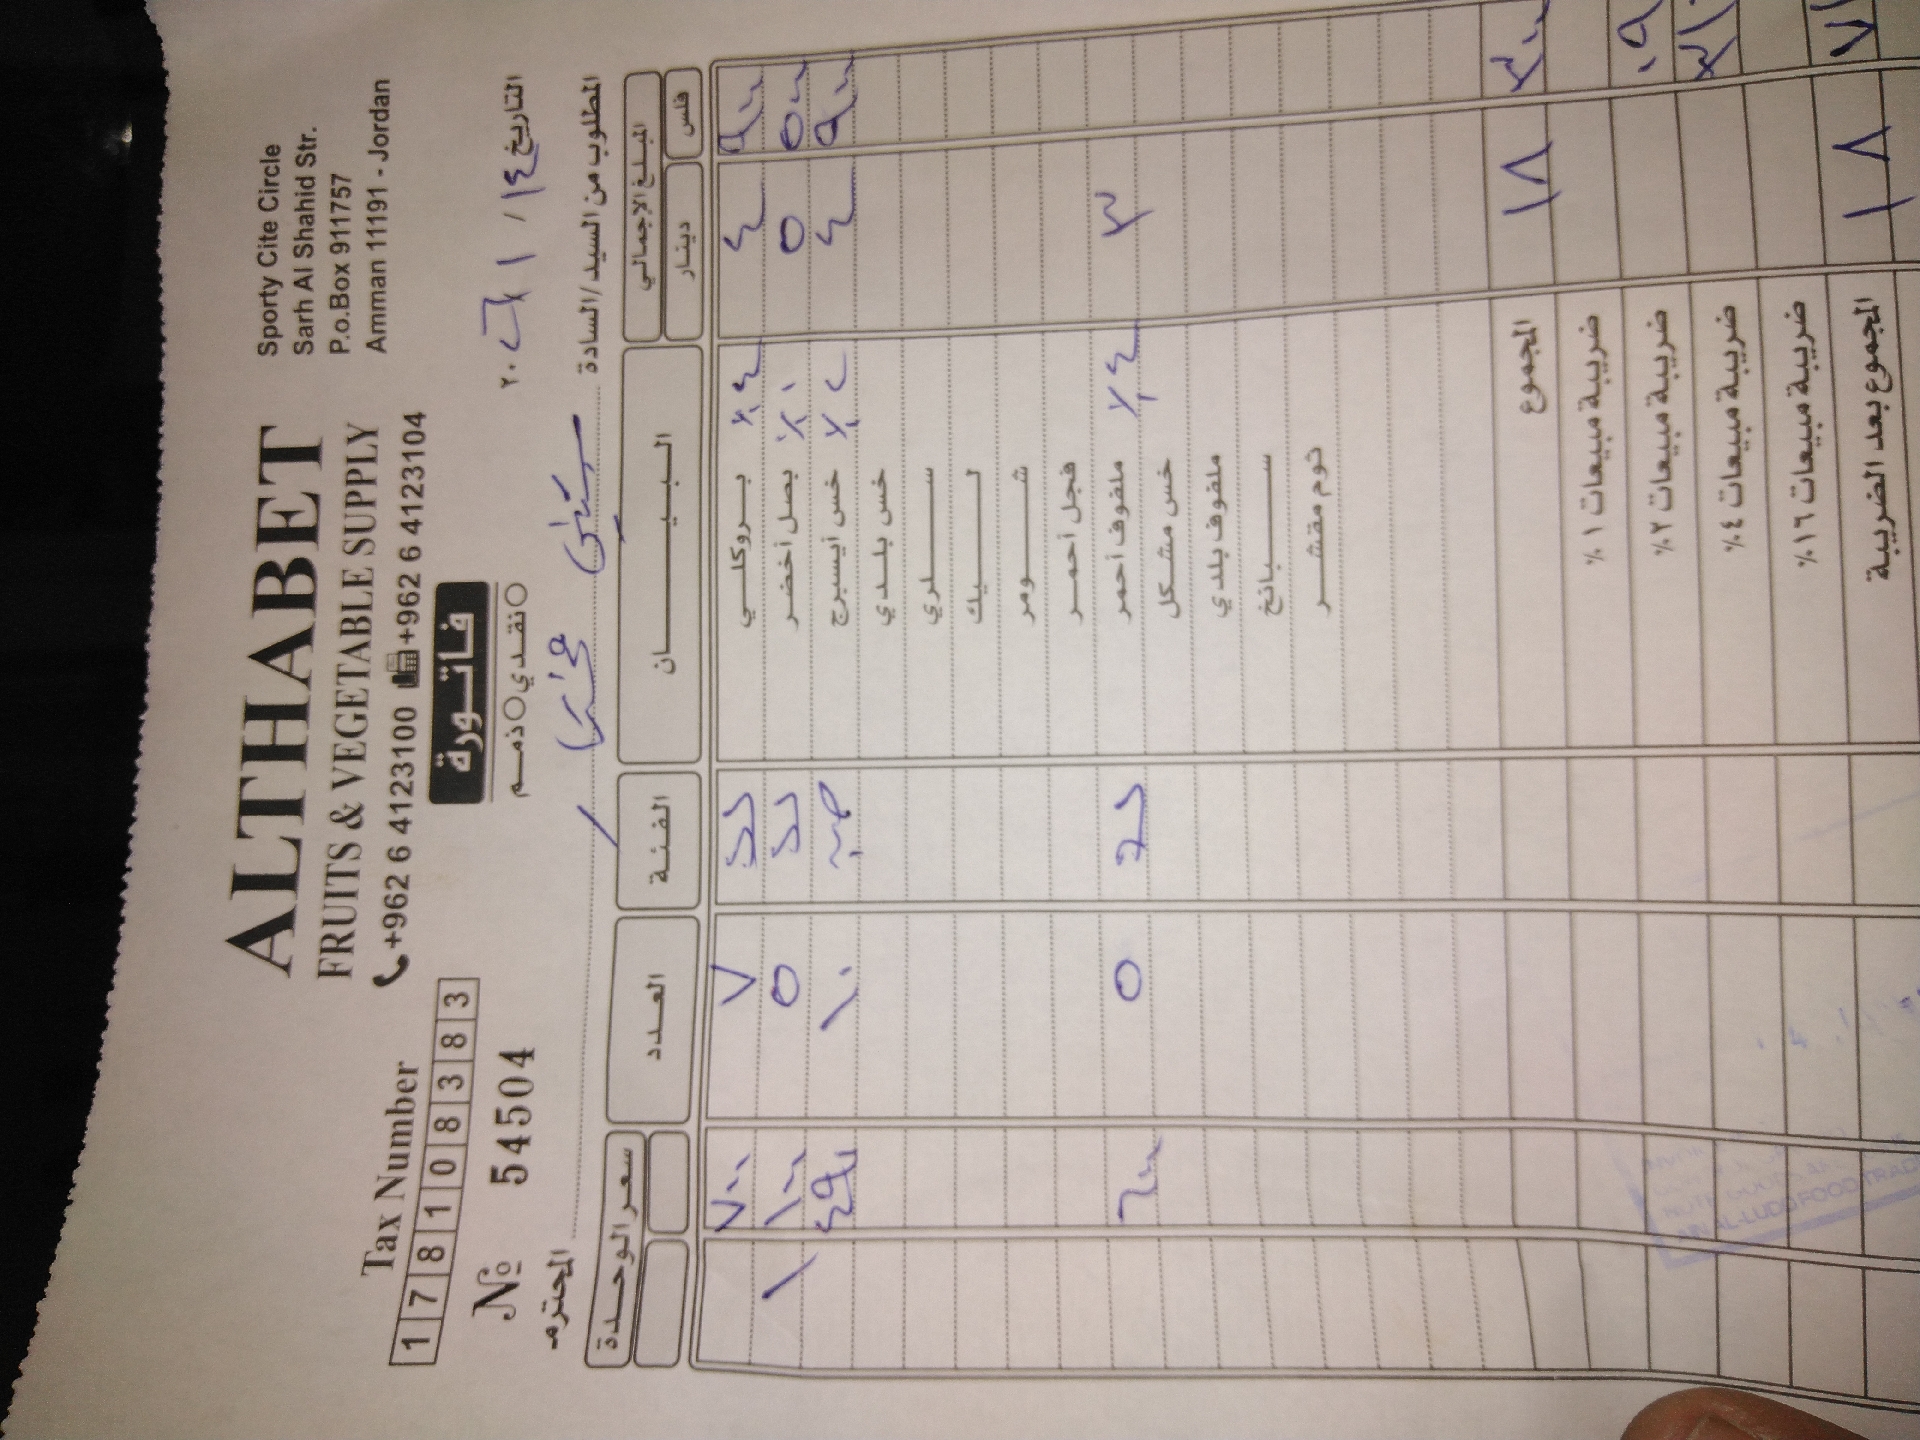 ALTHABET
FRUITS & VEGETABLE SUPPLY
+962 6 4123100 +962 6 4123104
Sporty Cite Circle
Sarh Al Shahid Str.
P.o.Box 911757
Amman 11191 - Jordan
Tax Number
1 7 8 1 0 8 3 8 3
فاتورة
ذمم نقدي
№ 54504
التاريخ ١٤ / ١ / ٢٠
المطلوب من السيد/السادة المحترم
المبلغ الإجمالي البيان الفئة العدد سعر الوحدة
فلس دينار
٩٠٠ ٤ ٪٤ بروكلي ٧ ٧٠٠
٥٠٠ ٥ ٪٠ بصل أخضر ٥ ١٠٠ ١
٩٠٠ ٤ ٪ خس أيسبرج ١٠ ٤٩٠
خس بلدي
سلري
ليك
شومر
فجل أحمر
٣ ٪٤ ملفوف أحمر ٥ ٦٠٠
خس مشكل
ملفوف بلدي
سبانخ
ثوم مقشر
٣٠٠ ١٨ المجموع
ضريبة مبيعات ١٪
ضريبة مبيعات ٢٪
ضريبة مبيعات ٤٪
ضريبة مبيعات ١٦٪
١٨ المجموع بعد الضريبة